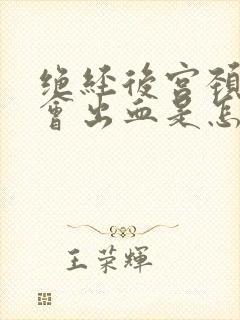 绝经後宫頚
會出血是怎
王荣輝